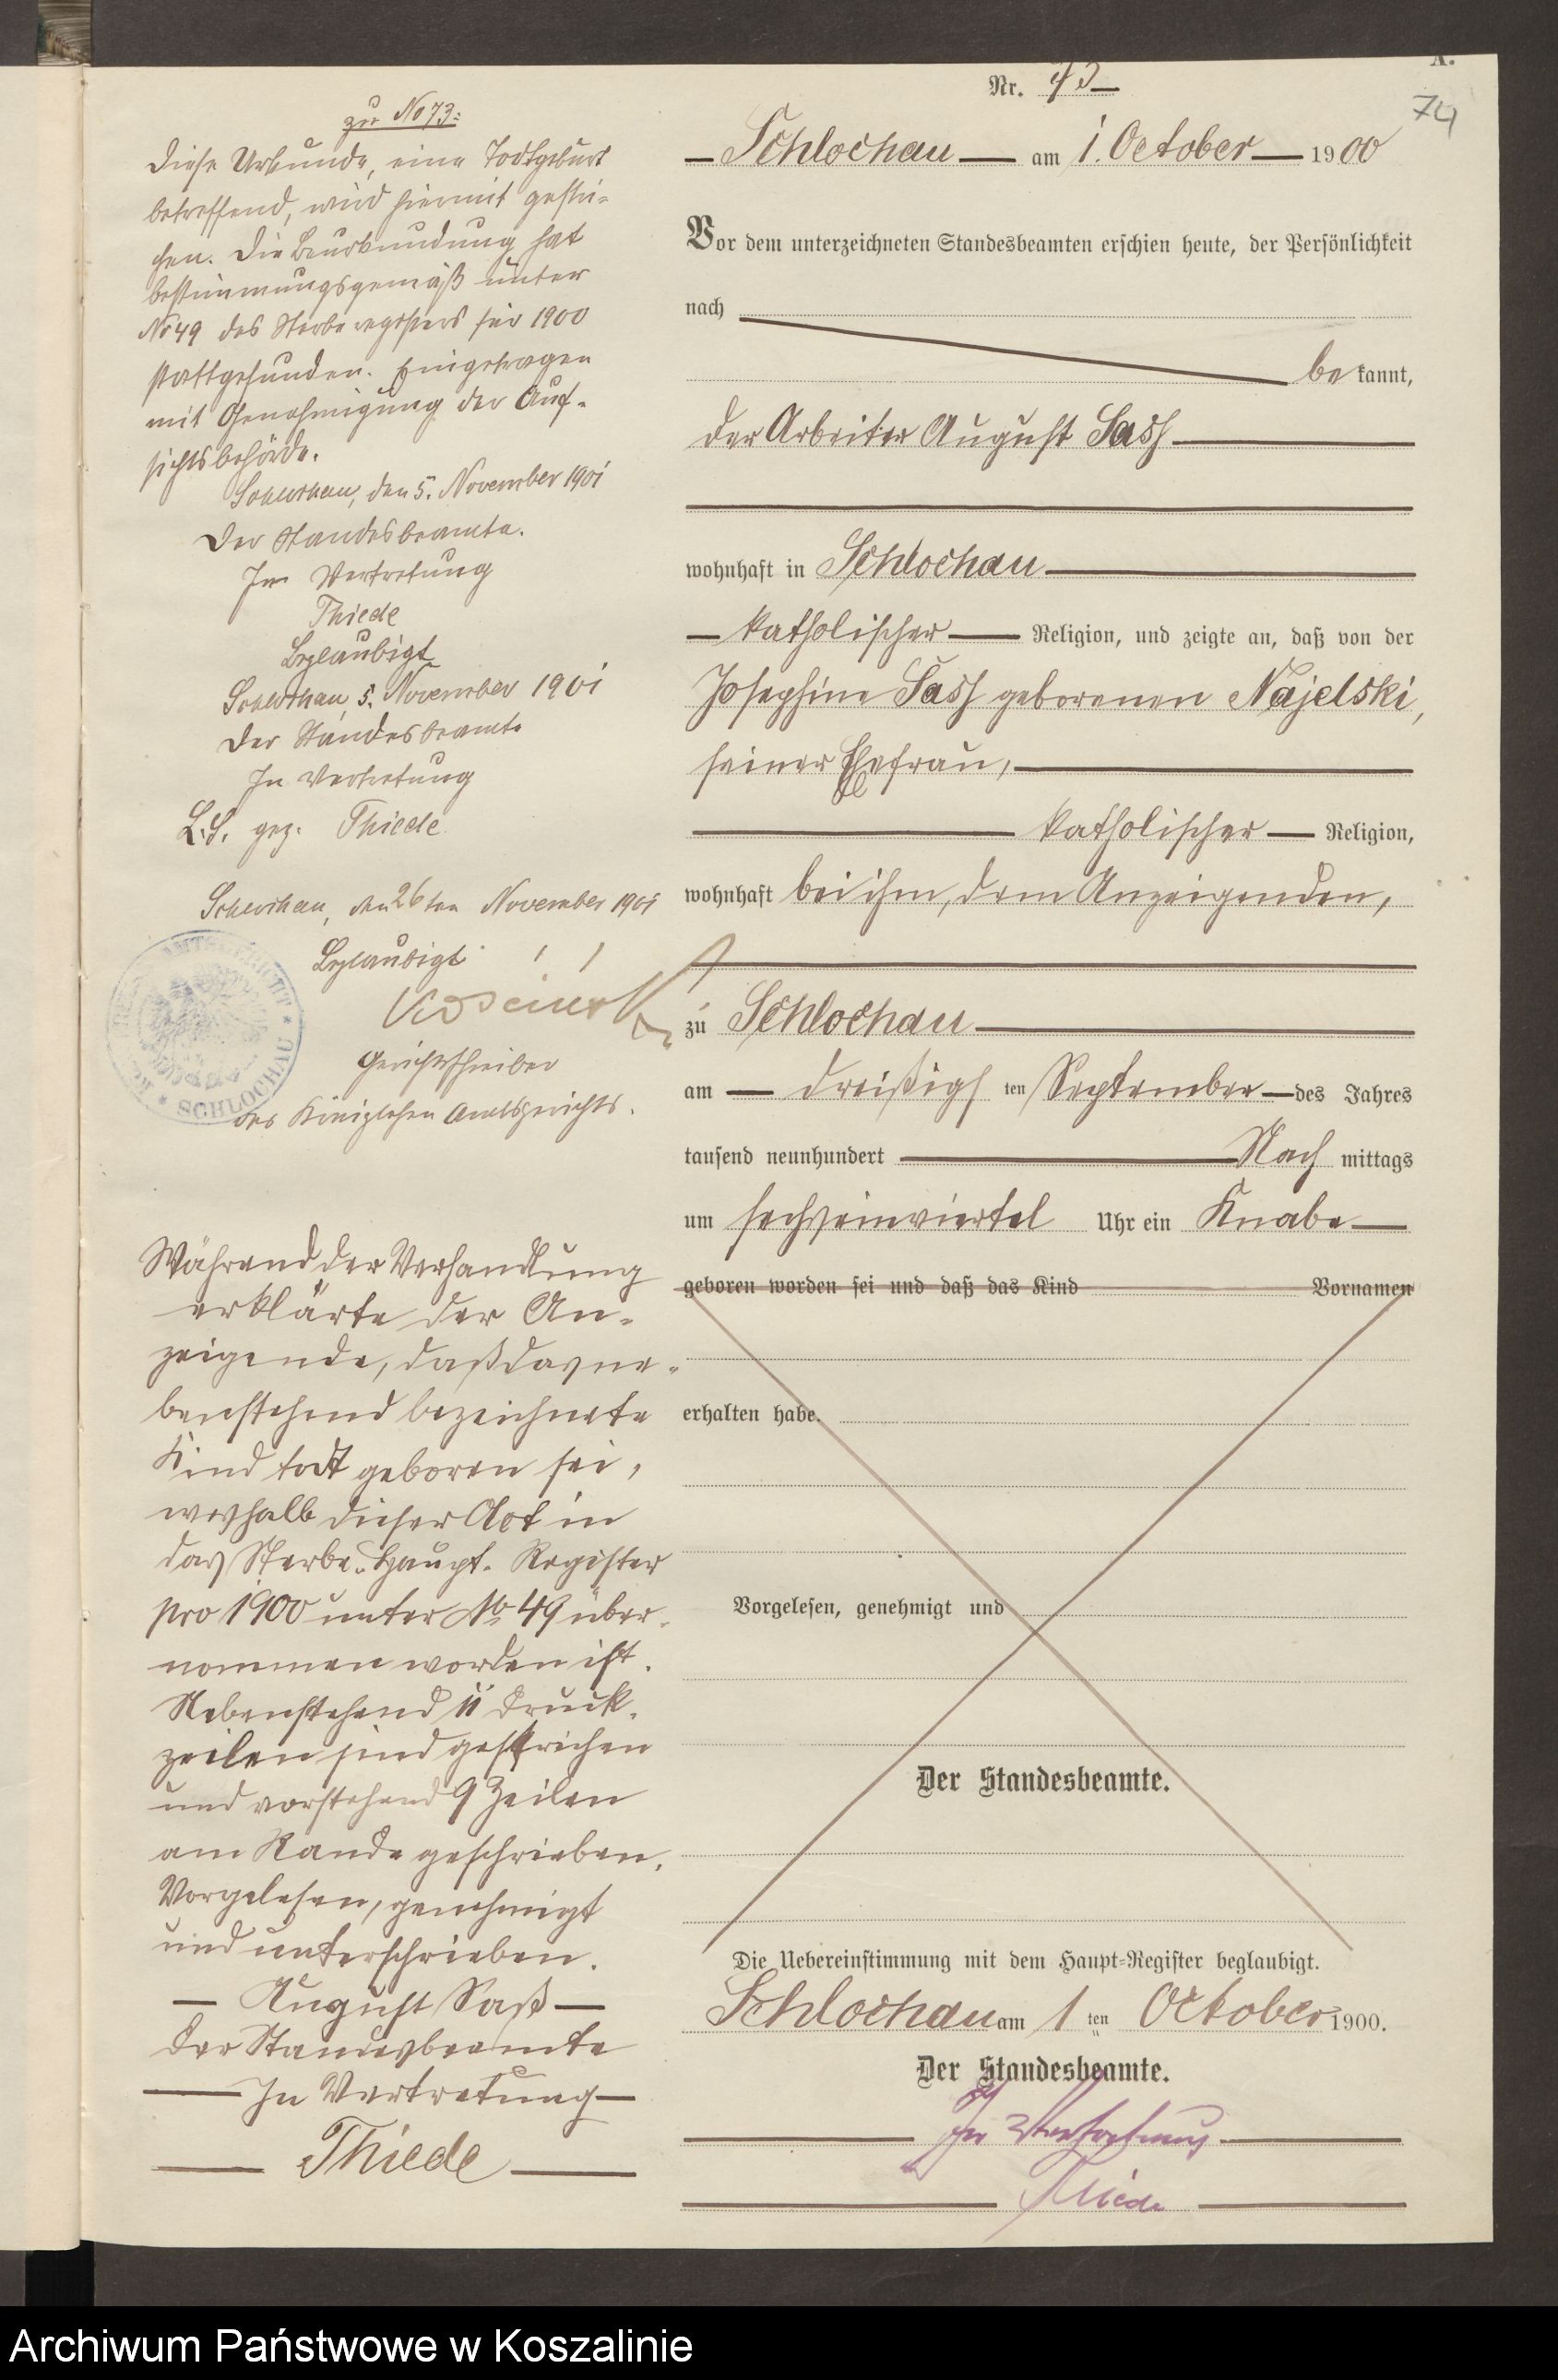 A.
Nr. 73
74
Schlochau am 1. October 1900
Vor dem unterzeichneten Standesbeamten erschien heute, der Persönlichkeit
nach
bekannt,
der Arbeiter August Sass
wohnhaft in Schlochau
katholischer Religion, und zeigte an, daß von der
Josephine Sass geborenen Najelski,
seiner Ehefrau,
katholischer Religion,
wohnhaft bei ihm, dem Anzeigenden,
zu Schlochau
am dreißigsten September des Jahres
tausend neunhundert Nachmittags
um sechseinviertel Uhr ein Knabe
geboren worden sei und daß das Kind Vornamen
erhalten habe.
Vorgelesen, genehmigt und
Der Standesbeamte.
Die Uebereinstimmung mit dem Haupt-Register beglaubigt.
Schlochau am 1 ten October 1900.
Der Standesbeamte.
In Vertretung
Thiede
zu No 73:
Diese Urkunde, eine Todtgeburt
betreffend, wird hiermit gestri-
chen. Die Beurkundung hat
bestimmungsgemäß unter
No 49 des Sterberegisters für 1900
stattgefunden. Eingetragen
mit Genehmigung der Auf-
sichtsbehörde.
Schlochau, den 5. November 1901
Der Standesbeamte.
In Vertretung
Thiede
Beglaubigt
Schlochau, 5. November 1901
Der Standesbeamte
In Vertretung
L.S. gez. Thiede
Schlochau, den 26ten November 1901
Beglaubigt
Gerichtsschreiber
des Königlichen Amtsgerichts.
AMTSGERICHT * SCHLOCHAU *
Während der Verhandlung
erklärte der An-
zeigende, daß das ne-
benstehend bezeichnete
Kind todt geboren sei,
weshalb dieser Act in
das Sterbe-Haupt-Register
pro 1900 unter No 49 über-
nommen worden ist.
Nebenstehend 11 Druck-
zeilen sind gestrichen
und vorstehend 9 Zeilen
am Rande geschrieben.
Vorgelesen, genehmigt
und unterschrieben.
August Saß
Der Standesbeamte
In Vertretung
Thiede
Archiwum Państwowe w Koszalinie